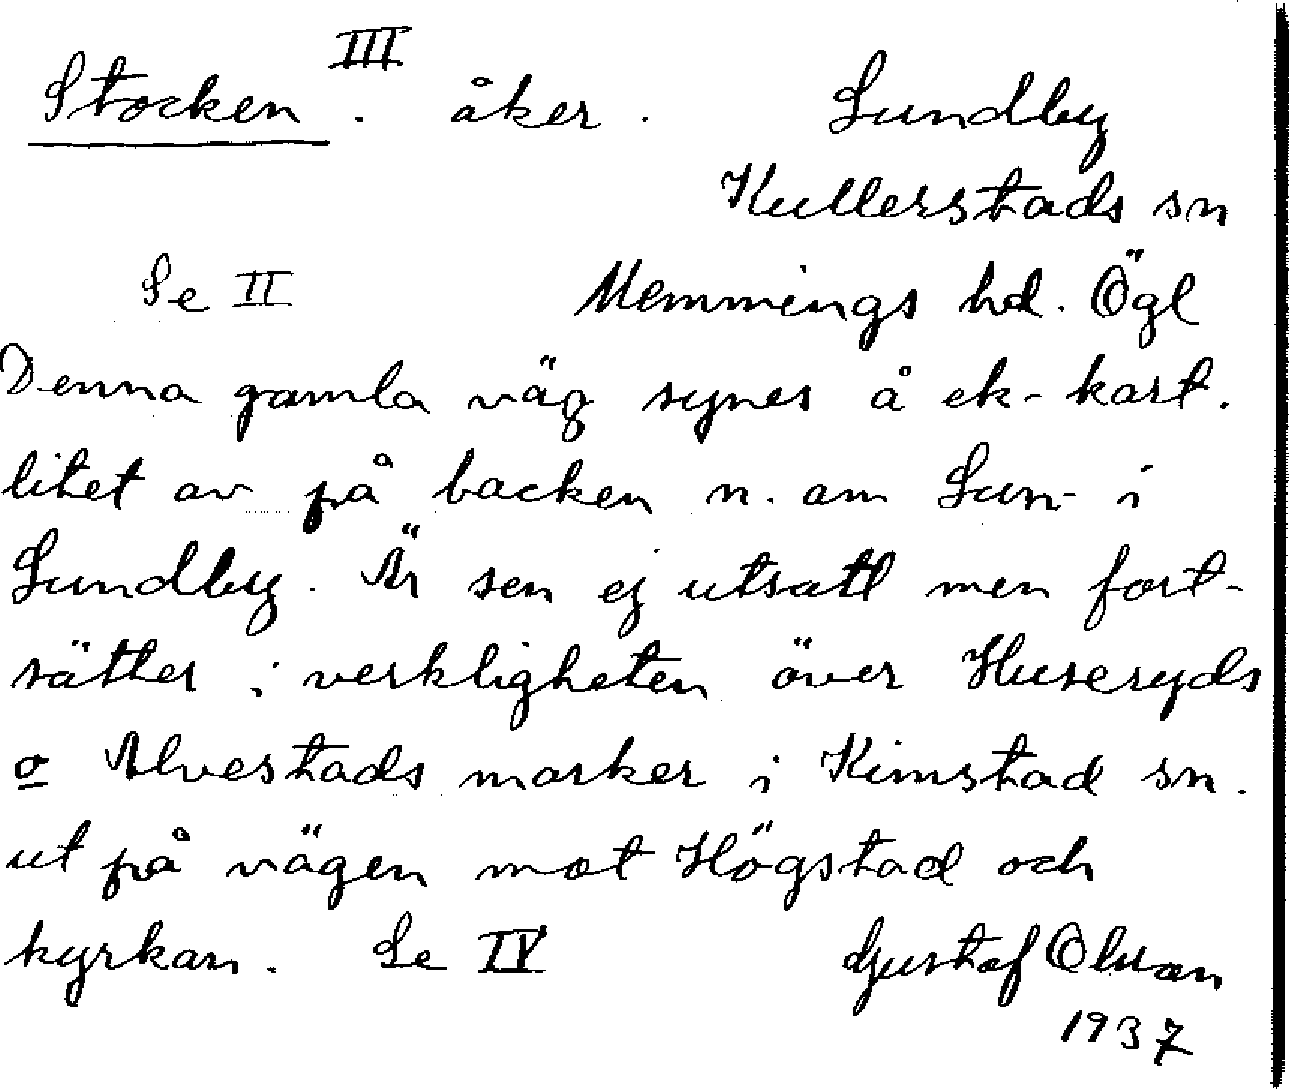 III
Stocken . åker . Lundby
Kullerstads sn
Se II Memmings hd. Ögl
Denna gamla väg synes å ek-kart.
litet av på backen n. om Lun- i
Lundby. Är sen ej utsatt men fort-
sätter i verkligheten över Huseryds
o Alvestads marker i Kimstad sn.
ut på vägen mot Högstad och
kyrkan. Se IV Gustaf Olsson
1937